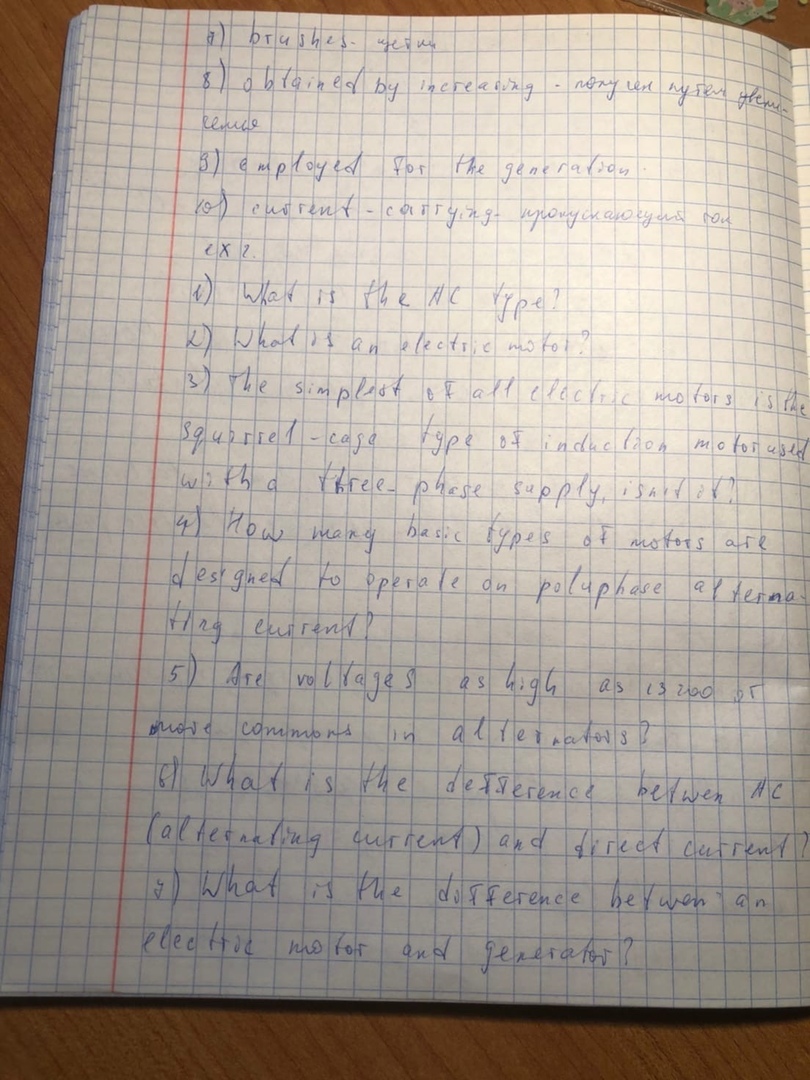 7) brushes - щетки
8) obtained by increasing - получен путем увели-
чения
9) employed for the generation.
10) current - carrying - пропускающий ток
ex 2.
1) What is the AC type?
2) What is an electric motor?
3) The simplest of all electric motors is the
squirrel - cage type of induction motor used
with a three-phase supply, isnit it?
4) How many basic types of motors are
designed to operate on poluphase alterna-
ting current?
5) Are voltages as high as 13200 or
more commons in alternators?
6) What is the defference betwen AC
(alternating current) and direct current?
7) What is the difference betwen an
electric motor and generator?